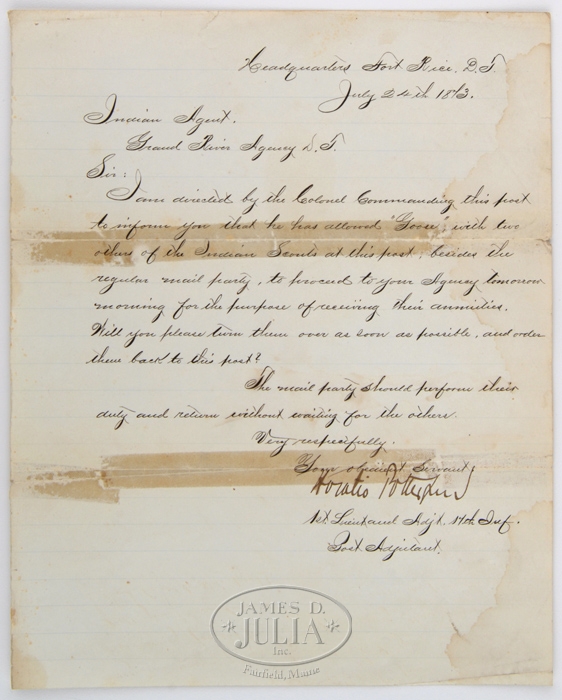 Headquarters Fort Rice. D.T.
July 24th 1873.
Indian Agent.
Grand River Agency D.T.
Sir:
I am directed by the Colonel Commanding this post
to inform you that he has allowed "Goose" with two
others of the Indian Scouts at this post, besides the
regular mail party, to proceed to your Agency tomorrow
morning for the purpose of receiving their annuities.
Will you please turn them over as soon as possible, and order
them back to this post?
The mail party should perform their
duty and return without waiting for the others.
Very respectfully.
Your obedient Servant,
Horatio Potter Jr
1st Lieut and Adjt. 17th Inf.
Post Adjutant.
JAMES D.
JULIA
Inc.
Fairfield, Maine